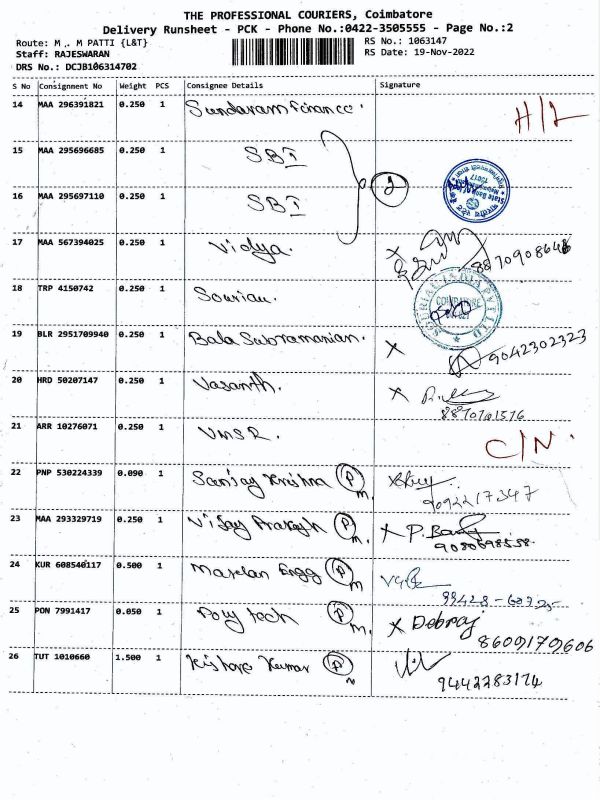 THE PROFESSIONAL COURIERS, Coimbatore
Delivery Runsheet - PCK - Phone No.:0422-3505555 - Page No.:2
Route: M . M PATTI {L&T}
RS No.: 1063147
Staff: RAJESWARAN
RS Date: 19-Nov-2022
DRS No.: DCJB106314702
S No Consignment No Weight PCS Consignee Details Signature
14 MAA 296391821 0.250 1 Sundaram Finance. H/L
15 MAA 295696685 0.250 1 SBI
2
16 MAA 295697110 0.250 1 SBI
17 MAA 567394025 0.250 1 Vidya. X
18 TRP 4150742 0.250 1 Sourian.
19 BLR 2951709940 0.250 1 Bala Subramanian. X 9042302323
20 HRD 50207147 0.250 1 Vasanth. X
21 ARR 10276071 0.250 1 VMSR. C/N.
22 PNP 530224339 0.090 1 Sanjay Krishna P M. 9092217347
23 MAA 293329719 0.250 1 Vijay Prakash P M. X
24 KUR 608540117 0.500 1 Marlan Engg P M
25 PON 7991417 0.050 1 Poly tech P M. X Debraj
8609179606
26 TUT 1010660 1.500 1 Kishore Kumar P M
9442283174